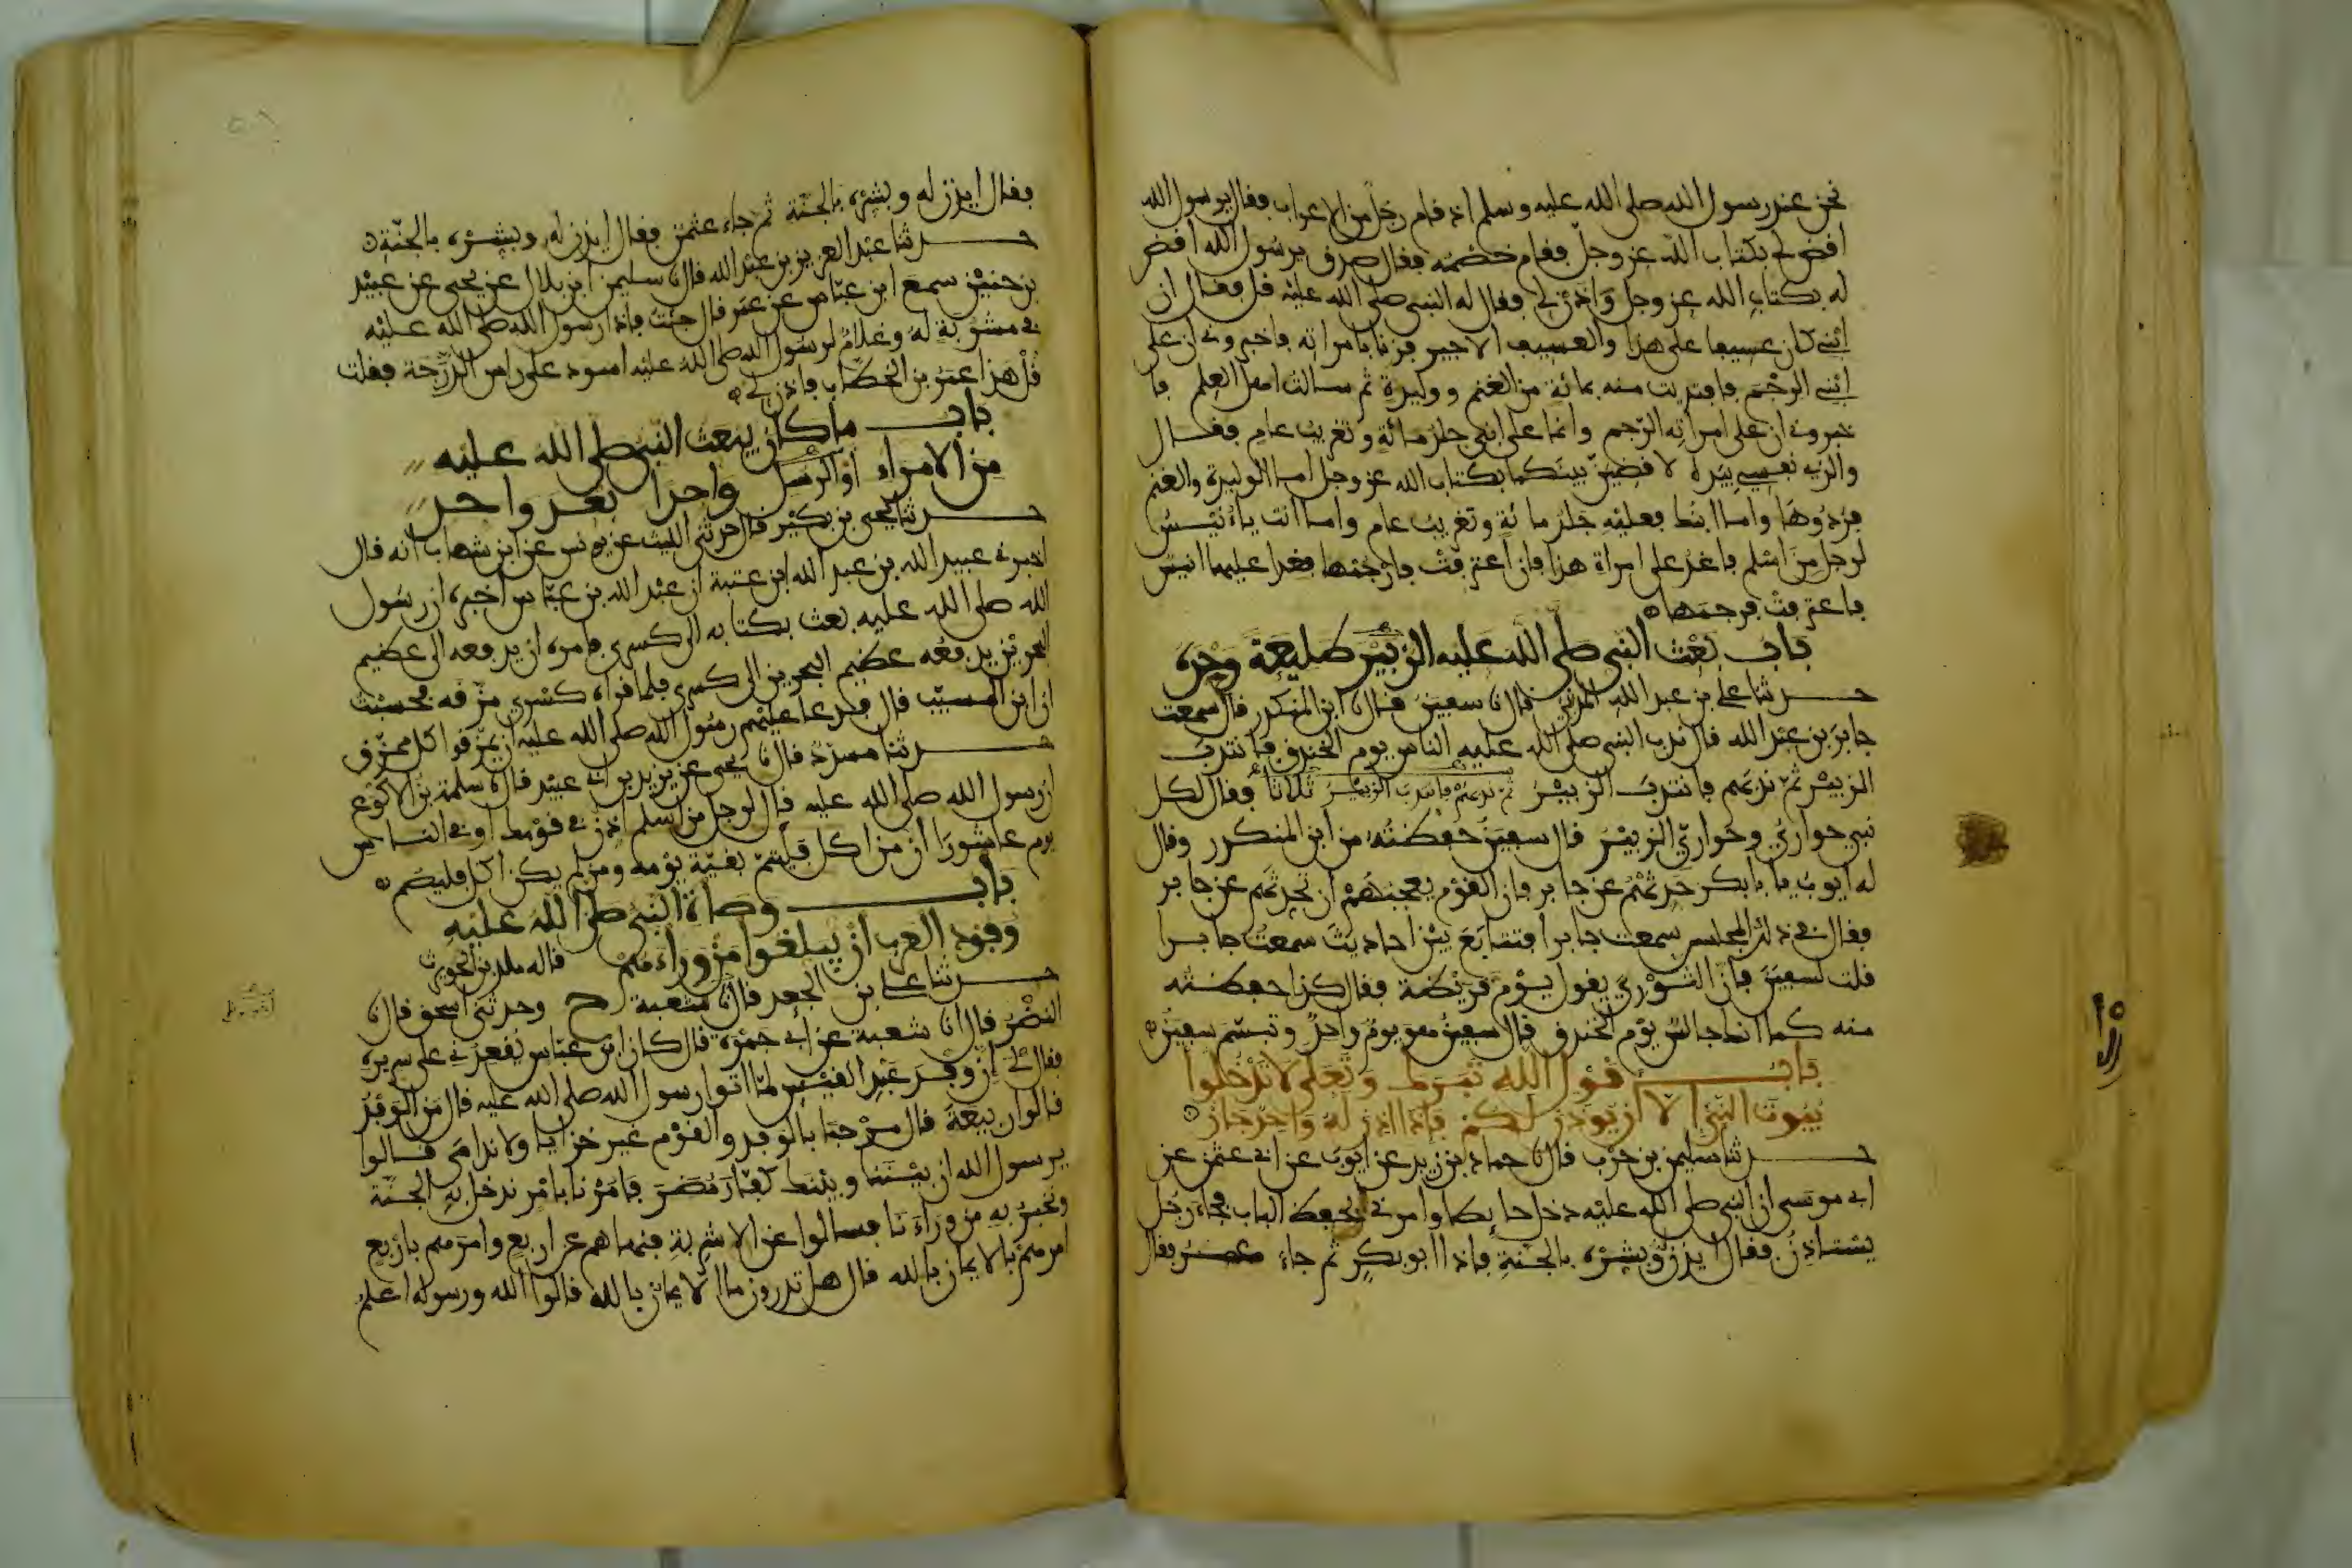 نحن عند رسول الله صلى الله عليه وسلم اذ قام رجل من الاعراب فقال يرسول الله
اقض لي بكتاب الله عز وجل فقام خصمه فقال صدق يرسول الله اقض
له بكتاب الله عز وجل واذن لي فقال له النبي صلى الله عليه قل فقال ان
ابني كان عسيفا على هذا والعسيف الاجير فزنا بامراته فاخبروني ان على
ابني الرجم فافتديت منه بمائة من الغنم ووليدة ثم سالت اهل العلم فا
خبروني ان على امراته الرجم وانما على ابني جلد مائة وتغريب عام فقال
والذي نفسي بيده لاقضين بينكما بكتاب الله عز وجل اما الوليدة والغنم
فردوها واما ابنك فعليه جلد مائة وتغريب عام واما انت يا انيس
لرجل من اسلم فاغد على امراة هذا فان اعترفت فارجمها فغدا عليها انيس
فاعترفت فرجمها
باب بعث النبي صلى الله عليه الزبير طليعة وحده
حدثنا علي بن عبد الله المديني قال نا سفين قال نا ابن المنكدر قال سمعت
جابر بن عبد الله قال ندب النبي صلى الله عليه الناس يوم الخندق فانتدب
الزبير ثم ندبهم فانتدب الزبير ثم ندبهم فانتدب الزبير ثلاثا فقال لكل
نبي حواري وحواري الزبير قال سفين حفظته من ابن المنكدر وقال
له ايوب يا بابكر حدثهم عن جابر فان القوم يعجبهم ان تحدثهم عن جابر
فقال في ذلك المجلس سمعت جابرا فتتابع بين احاديث سمعت جابرا
قلت لسفين فان الثوري يقول يوم قريظة فقال كذا حفظته
منه كما انك جالس يوم الخندق قال سفين هو يوم واحد وتبسم سفين
باب قول الله تبرك وتعلى لا تدخلوا
بيوت النبي الا ان يوذن لكم فاذا اذن له واحد جاز
حدثنا سليمن بن حرب قال نا حماد بن زيد عن ايوب عن ابي عثمن عن
ابي موسى ان النبي صلى الله عليه دخل حايطا وامرني بحفظ الباب فجاء رجل
يستاذن فقال ايذن له وبشره بالجنة فاذا ابو بكر ثم جاء عمر فقال
فقال ايذن له وبشره بالجنة ثم جاء عثمن فقال ايذن له وبشره بالجنة
حدثنا عبد العزيز بن عبد الله قال نا سليمن ابن بلال عن يحيى عن عبيد
بن حنين سمع ابن عباس عن عمر قال جئت فاذا رسول الله صلى الله عليه
في مشربة له وغلام لرسول الله صلى الله عليه اسود على راس الدرجة فقلت
قل هذا عمر بن الخطاب فاذن لي
باب ما كان يبعث النبي صلى الله عليه
من الامراء او الرسل واحدا بعد واحد
حدثنا يحيى بن بكير قال حدثني الليث عن يونس عن ابن شهاب انه قال
اخبرني عبيد الله بن عبد الله ابن عتبة ان عبد الله بن عباس اخبره ان رسول
الله صلى الله عليه بعث بكتابه الى كسرى فامره ان يدفعه الى عظيم
البحرين يدفعه عظيم البحرين الى كسرى فلما قراه كسرى مزقه فحسبت
ان ابن المسيب قال فدعا عليهم رسول الله صلى الله عليه ان يمزقوا كل ممزق
حدثنا مسدد قال نا يحيى عن يزيد بن ابي عبيد قال نا سلمة بن الاكوع
ان رسول الله صلى الله عليه قال لرجل من اسلم اذن في قومك او في الناس
يوم عاشورا ان من اكل فليتم بقية يومه ومن لم يكن اكل فليصم
باب وصاة النبي صلى الله عليه
وفود العرب ان يبلغوا من وراءهم قاله ملك بن الحويرث
حدثنا علي بن الجعد قال نا شعبة ح وحدثني اسحق قال نا
النضر قال نا شعبة عن ابي جمرة قال كان ابن عباس يقعدني على سريره
فقال لي ان وفد عبد القيس لما اتوا رسول الله صلى الله عليه قال من الوفد
قالوا ربيعة قال مرحبا بالوفد والقوم غير خزايا ولا ندامى قالوا
يرسول الله ان بيننا وبينك كفار مضر فامرنا بامر ندخل به الجنة
ونخبر به من وراءنا فسالوا عن الاشربة فنهاهم عن اربع وامرهم باربع
امرهم بالايمان بالله قال هل تدرون ما الايمان بالله قالوا الله ورسوله اعلم